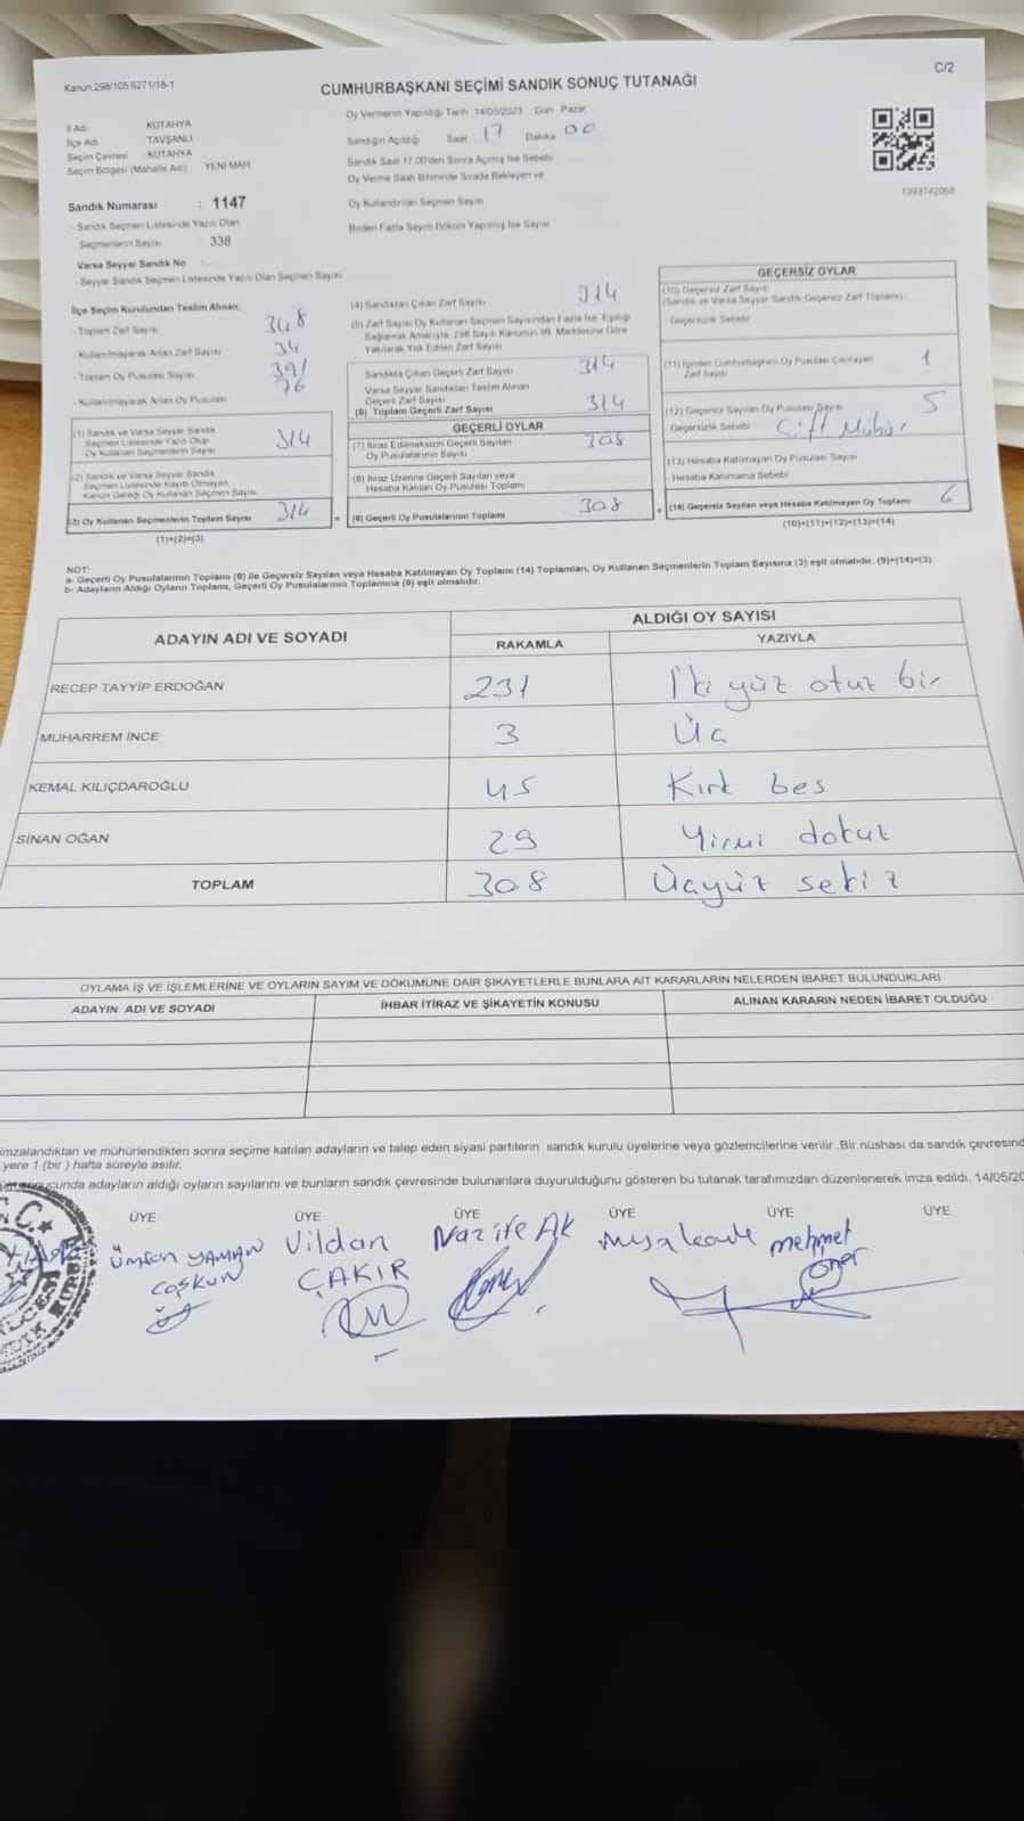 Kanun:298/105 6271/16-1
C/2
CUMHURBAŞKANI SEÇİMİ SANDIK SONUÇ TUTANAĞI
İl Adı KÜTAHYA
İlçe Adı TAVŞANLI
Seçim Çevresi KÜTAHYA
Seçim Bölgesi (Mahalle Adı) YENİ MAH
Sandık Numarası : 1147
- Sandık Seçmen Listesinde Yazılı Olan
Seçmenlerin Sayısı 338
Varsa Seyyar Sandık No
- Seyyar Sandık Seçmen Listesinde Yazılı Olan Seçmen Sayısı
Oy Vermenin Yapıldığı Tarih 14/05/2023 Gün Pazar
Sandığın Açıldığı Saat 17 Dakika 00
Sandık Saat 17.00'den Sonra Açılmış İse Sebebi
Oy Verme Saati Bitiminde Sırada Bekleyen ve
Oy Kullandırılan Seçmen Sayısı
Birden Fazla Sayım Döküm Yapılmış İse Sayısı
1393742068
İlçe Seçim Kurulundan Teslim Alınan:
- Toplam Zarf Sayısı 348
- Kullanılmayarak Artan Zarf Sayısı 34
- Toplam Oy Pusulası Sayısı 391
- Kullanılmayarak Artan Oy Pusulası 76
(1) Sandık ve Varsa Seyyar Sandık
Seçmen Listesinde Yazılı Olup
Oy Kullanan Seçmenlerin Sayısı 314
(2) Sandık ve Varsa Seyyar Sandık
Seçmen Listesinde Kayıtlı Olmayan
Kanun Gereği Oy Kullanan Seçmen Sayısı
(3) Oy Kullanan Seçmenlerin Toplam Sayısı 314
(1)+(2)=(3)
(4) Sandıktan Çıkan Zarf Sayısı 314
(5) Zarf Sayısı Oy Kullanan Seçmen Sayısından Fazla İse, Eşitliği
Sağlamak Amacıyla, 298 Sayılı Kanunun 98. Maddesine Göre
Yakılarak Yok Edilen Zarf Sayısı
Sandıkta Çıkan Geçerli Zarf Sayısı 314
Varsa Seyyar Sandıktan Teslim Alınan
Geçerli Zarf Sayısı
(6) Toplam Geçerli Zarf Sayısı 314
GEÇERLİ OYLAR
(7) İtiraz Edilmeksizin Geçerli Sayılan
Oy Pusulalarının Sayısı 308
(8) İtiraz Üzerine Geçerli Sayılan veya
Hesaba Katılan Oy Pusulası Toplamı
(9) Geçerli Oy Pusulalarının Toplamı 308
GEÇERSİZ OYLAR
(10) Geçersiz Zarf Sayısı
(Sandık ve Varsa Seyyar Sandık Geçersiz Zarf Toplamı)
- Geçersizlik Sebebi
(11) İçinden Cumhurbaşkanı Oy Pusulası Çıkmayan
Zarf Sayısı 1
(12) Geçersiz Sayılan Oy Pusulası Sayısı 5
Geçersizlik Sebebi Çift Mühür
(13) Hesaba Katılmayan Oy Pusulası Sayısı
- Hesaba Katılmama Sebebi
(14) Geçersiz Sayılan veya Hesaba Katılmayan Oy Toplamı 6
(10)+(11)+(12)+(13)=(14)
NOT:
a- Geçerli Oy Pusulalarının Toplamı (9) ile Geçersiz Sayılan veya Hesaba Katılmayan Oy Toplamı (14) Toplamları, Oy Kullanan Seçmenlerin Toplam Sayısına (3) eşit olmalıdır. (9)+(14)=(3)
b- Adayların Aldığı Oyların Toplamı, Geçerli Oy Pusulalarının Toplamına (9) eşit olmalıdır.
ADAYIN ADI VE SOYADI
ALDIĞI OY SAYISI
RAKAMLA YAZIYLA
RECEP TAYYİP ERDOĞAN 231 İki yüz otuz bir
MUHARREM İNCE 3 Üç
KEMAL KILIÇDAROĞLU 45 Kırk beş
SİNAN OĞAN 29 Yirmi dokuz
TOPLAM 308 Üçyüz sekiz
OYLAMA İŞ VE İŞLEMLERİNE VE OYLARIN SAYIM VE DÖKÜMÜNE DAİR ŞİKAYETLERLE BUNLARA AİT KARARLARIN NELERDEN İBARET BULUNDUKLARI
ADAYIN ADI VE SOYADI İHBAR İTİRAZ VE ŞİKAYETİN KONUSU ALINAN KARARIN NEDEN İBARET OLDUĞU
imzalandıktan ve mühürlendikten sonra seçime katılan adayların ve talep eden siyasi partilerin sandık kurulu üyelerine veya gözlemcilerine verilir. Bir nüshası da sandık çevresind
yere 1 (bir) hafta süreyle asılır.
cunda adayların aldığı oyların sayılarını ve bunların sandık çevresinde bulunanlara duyurulduğunu gösteren bu tutanak tarafımızdan düzenlenerek imza edildi. 14/05/20
ÜYE ÜYE ÜYE ÜYE ÜYE ÜYE
YAMAN COŞKUN
Vildan ÇAKIR
Nazife AK
mehmet Öner